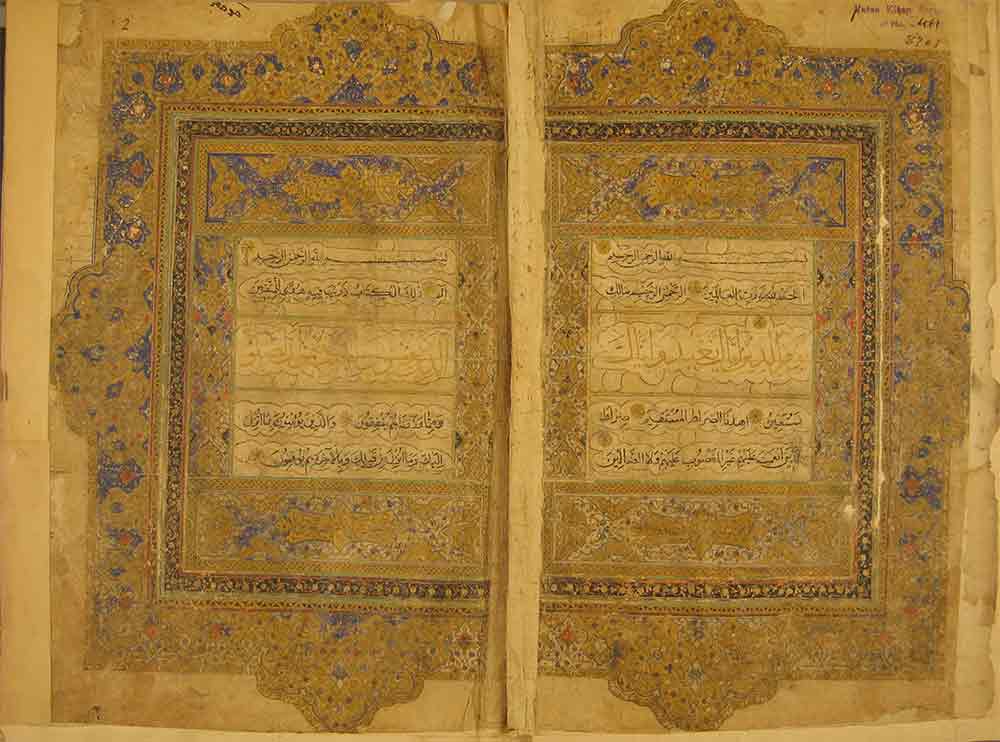 بسم الله الرحمن الرحيم
الحمد لله رب العالمين الرحمن الرحيم مالك
يوم الدين اياك نعبد واياك
نستعين اهدنا الصراط المستقيم صراط
الذين انعمت عليهم غير المغضوب عليهم ولا الضالين
2
بسم الله الرحمن الرحيم
الم ذلك الكتاب لا ريب فيه هدى للمتقين
الذين يؤمنون بالغيب ويقيمون الصلوة
ومما رزقناهم ينفقون والذين يؤمنون بما انزل
اليك وما انزل من قبلك وبالاخرة هم يوقنون